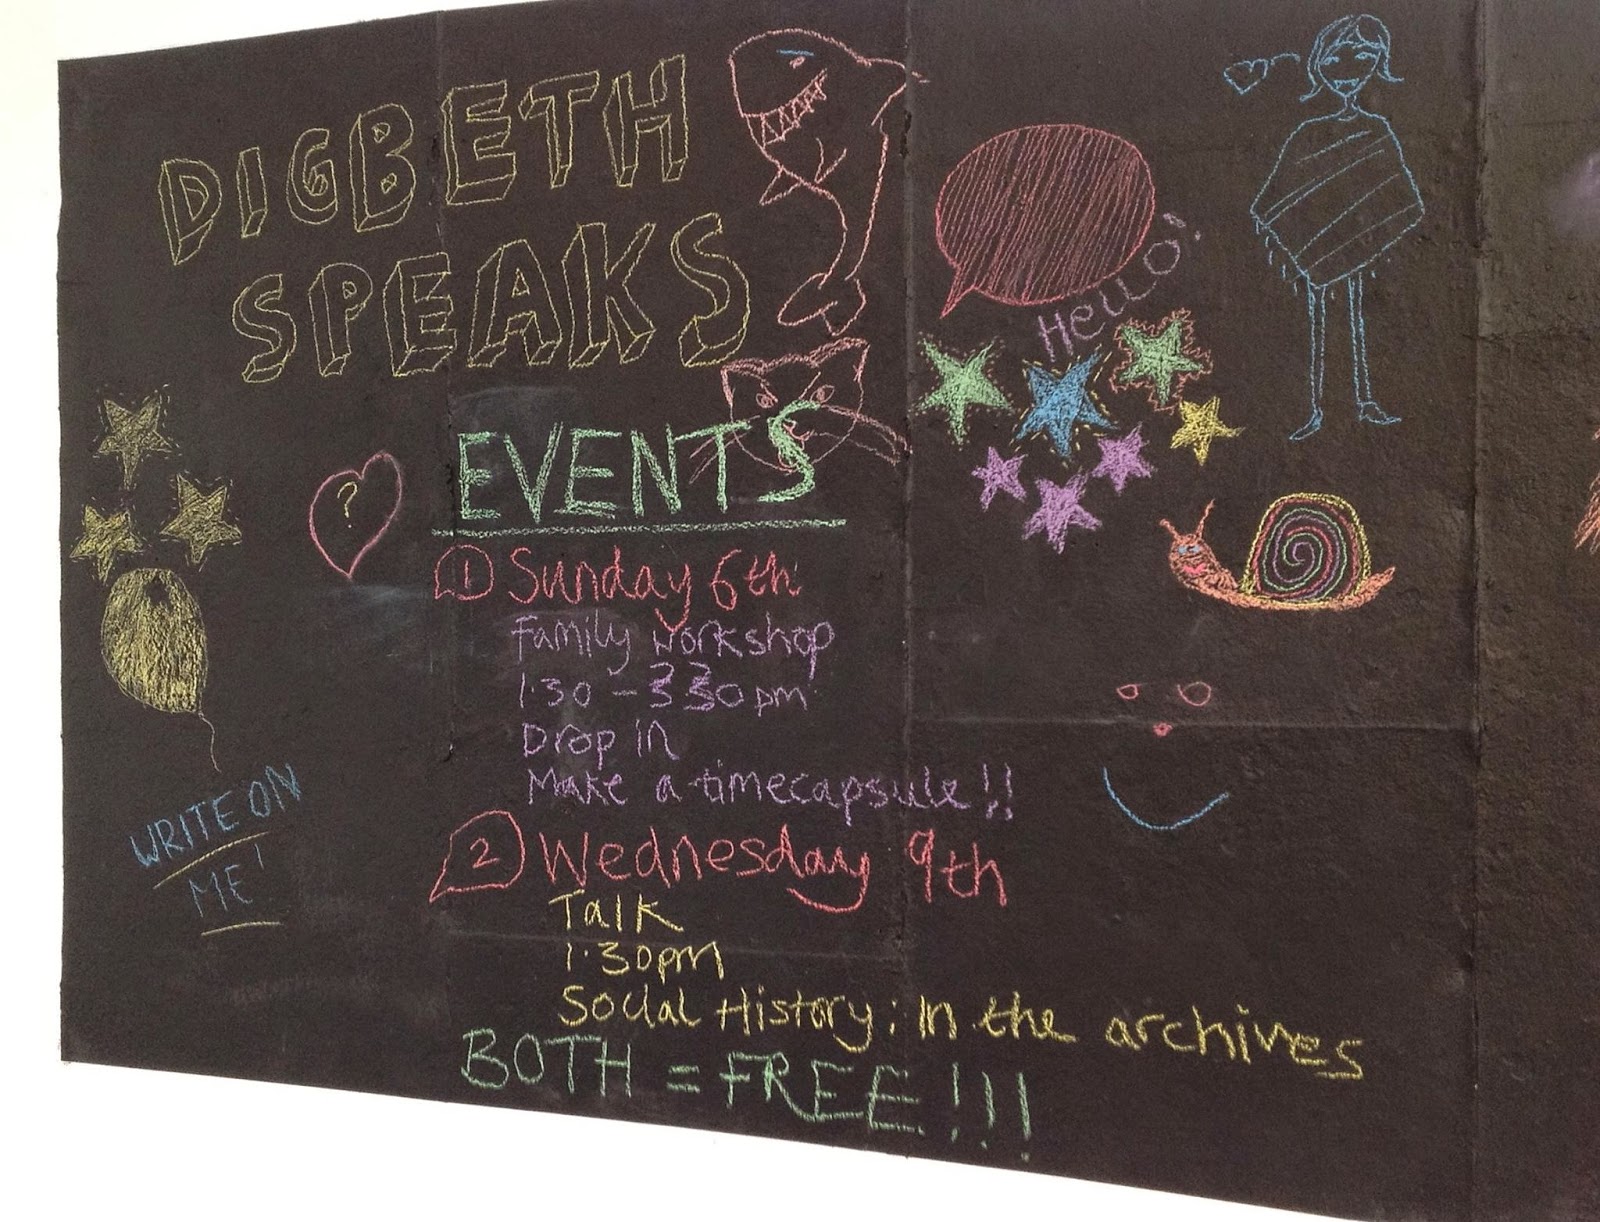 DIGBETH
SPEAKS
Hello!
EVENTS
?
1 Sunday 6th
Family workshop
1.30 - 3 30pm
Drop in
Make a timecapsule!!
WRITE ON
ME!
2 Wednesday 9th
Talk
1.30pm
Social History: In the archives
BOTH = FREE!!!